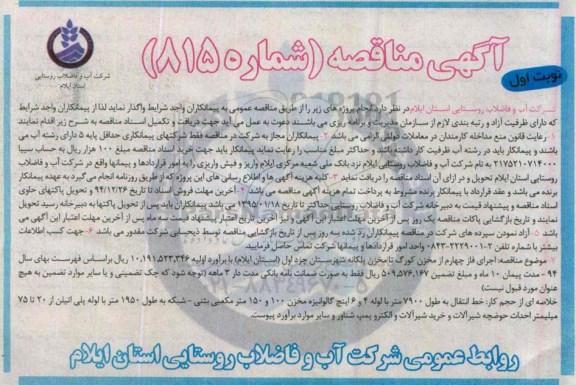 آگهی مناقصه (شماره ۸۱۵)
نوبت اول
شرکت آب و فاضلاب روستایی
استان ایلام
شرکت آب و فاضلاب روستایی استان ایلام در نظر دارد انجام پروژه های زیر را از طریق مناقصه عمومی به پیمانکاران واجد شرایط واگذار نماید لذا از پیمانکاران واجد شرایط
که دارای ظرفیت آزاد و رتبه بندی لازم از سازمان مدیریت و برنامه ریزی می باشند دعوت به عمل می آید جهت دریافت و تکمیل اسناد مناقصه به شرح زیر اقدام نمایند
۱- رعایت قانون منع مداخله کارمندان در معاملات دولتی الزامی می باشد ۲- پیمانکاران مجاز به شرکت در مناقصه فقط شرکتهای پیمانکاری حداقل پایه ۵ دارای رشته آب می
باشند و پیمانکار باید در رشته آب ظرفیت کار داشته باشد و حداکثر مبلغ مناسب را رعایت نماید پیمانکار باید جهت خرید اسناد مناقصه مبلغ ۱۰۰ هزار ریال به حساب سیبا
۲۱۷۵۲۱۰۷۱۴۰۰۰ به نام شرکت آب و فاضلاب روستایی ایلام نزد بانک ملی شعبه مرکزی ایلام واریز و فیش واریزی را به امور قراردادها و پیمانها واقع در شرکت آب و فاضلاب
روستایی استان ایلام تحویل و در ازای آن اسناد مناقصه را دریافت نماید ۳- کلیه هزینه آگهی ها و اطلاع رسانی های این پروژه که از طریق روزنامه انجام می گیرد به عهده برنده
برنده می باشد و عقد قرارداد با پیمانکار برنده مشروط به پرداخت تمام هزینه آگهی مناقصه می باشد ۴- آخرین مهلت فروش اسناد تا تاریخ ۹۴/۱۲/۲۶ و تحویل پاکتهای حاوی
اسناد مناقصه و پیشنهاد قیمت به دبیرخانه شرکت آب و فاضلاب روستایی حداکثر تا تاریخ ۱۳۹۵/۰۱/۱۸ می باشد پیمانکاران باید پس از تحویل پاکتها به دبیرخانه رسید تحویل
نمایند و تاریخ بازگشایی پاکات مناقصه یک روز پس از آخرین مهلت اعتبار این آگهی و در آخرین تاریخ اعتبار پیشنهاد قیمت سه ماه پس از آخرین مهلت اعتبار این آگهی می
باشد ۵- آزاد نمودن سپرده های شرکت در مناقصه پیمانکاران رد شده سه روز پس از تاریخ بازگشایی مناقصه توسط ذیحسابی شرکت مقدور می باشد ۶- جهت کسب اطلاعات
بیشتر با شماره تلفن ۲-۲۲۲۹۰۰۱-۰۸۴۳ واحد امور قراردادها و پیمانها شرکت تماس حاصل فرمایید.
۷- موضوع مناقصه: اجرای فاز چهارم از مخزن کورگ تا مخزن پالگانه شهرستان چرداول (استان ایلام) با برآورد اولیه ۱۰,۱۹۱,۵۳۳,۳۴۶ ریال براساس فهرست بهای سال
۹۴ - مدت پیمان ۱۰ ماه و مبلغ تضمین ۵۰۹,۵۷۶,۱۶۷ ریال فقط به صورت ضمانت نامه بانکی مدت دار ۳ ماهه (توجه شود که چک تضمینی و یا سایر موارد تضمین به هیچ
عنوان مورد قبول نیست)
خلاصه ای از حجم کار: خط انتقال به طول ۷۹۰۰ متر با لوله ۴ و ۶ اینچ گالوانیزه مخزن ۱۰۰ و ۱۵۰ متر مکعبی بتنی - شبکه به طول ۱۹۵۰ متر با لوله پلی اتیلن از ۲۰ تا ۷۵
میلیمتر احداث حوضچه شیرآلات و خرید شیرآلات و الکترو پمپ شناور و سایر موارد برآورد پیوست.
روابط عمومی شرکت آب و فاضلاب روستایی استان ایلام